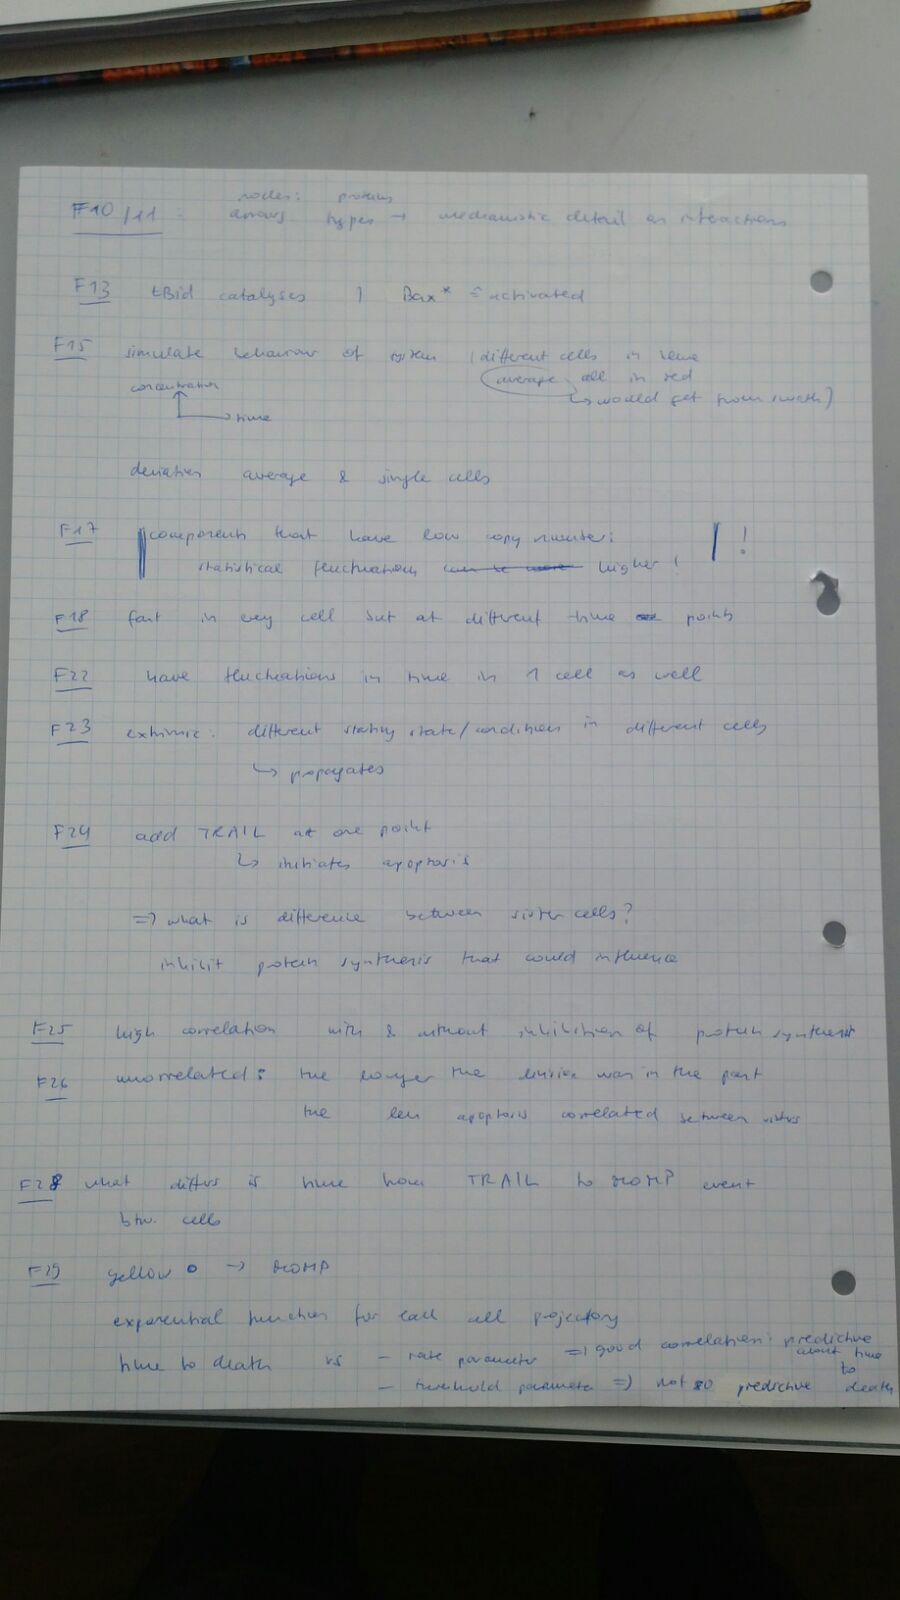 nodes: proteins
F10/11: arrows types → mechanistic detail on interactions
F13 tBid catalyses Bax* = activated
F15 simulate behaviour of system (different cells in
concentration average cell in red
→ time ↳ would get from
deviation average & single cells
F17 components that have low copy number: !
statistical fluctuations higher!
F18 fast in every cell but at different time points
F22 have fluctuations in time in 1 cell as well
F23 extrinsic: different starting state/conditions in different cells
↳ propagates
F24 add TRAIL at one point
↳ initiates apoptosis
=> what is difference between sister cells?
inhibit protein synthesis that could influence
F25 high correlation with & without inhibition of protein synthesis
F26 uncorrelated: the longer the division was in the past
the less apoptosis correlated between sisters
F28 what differs is time from TRAIL to MOMP event
btw. cells
F29 yellow o → MOMP
exponential function for each cell
time to death vs - rate parameter => good correlation: predictive about time to death
- threshold parameter => not so predictive